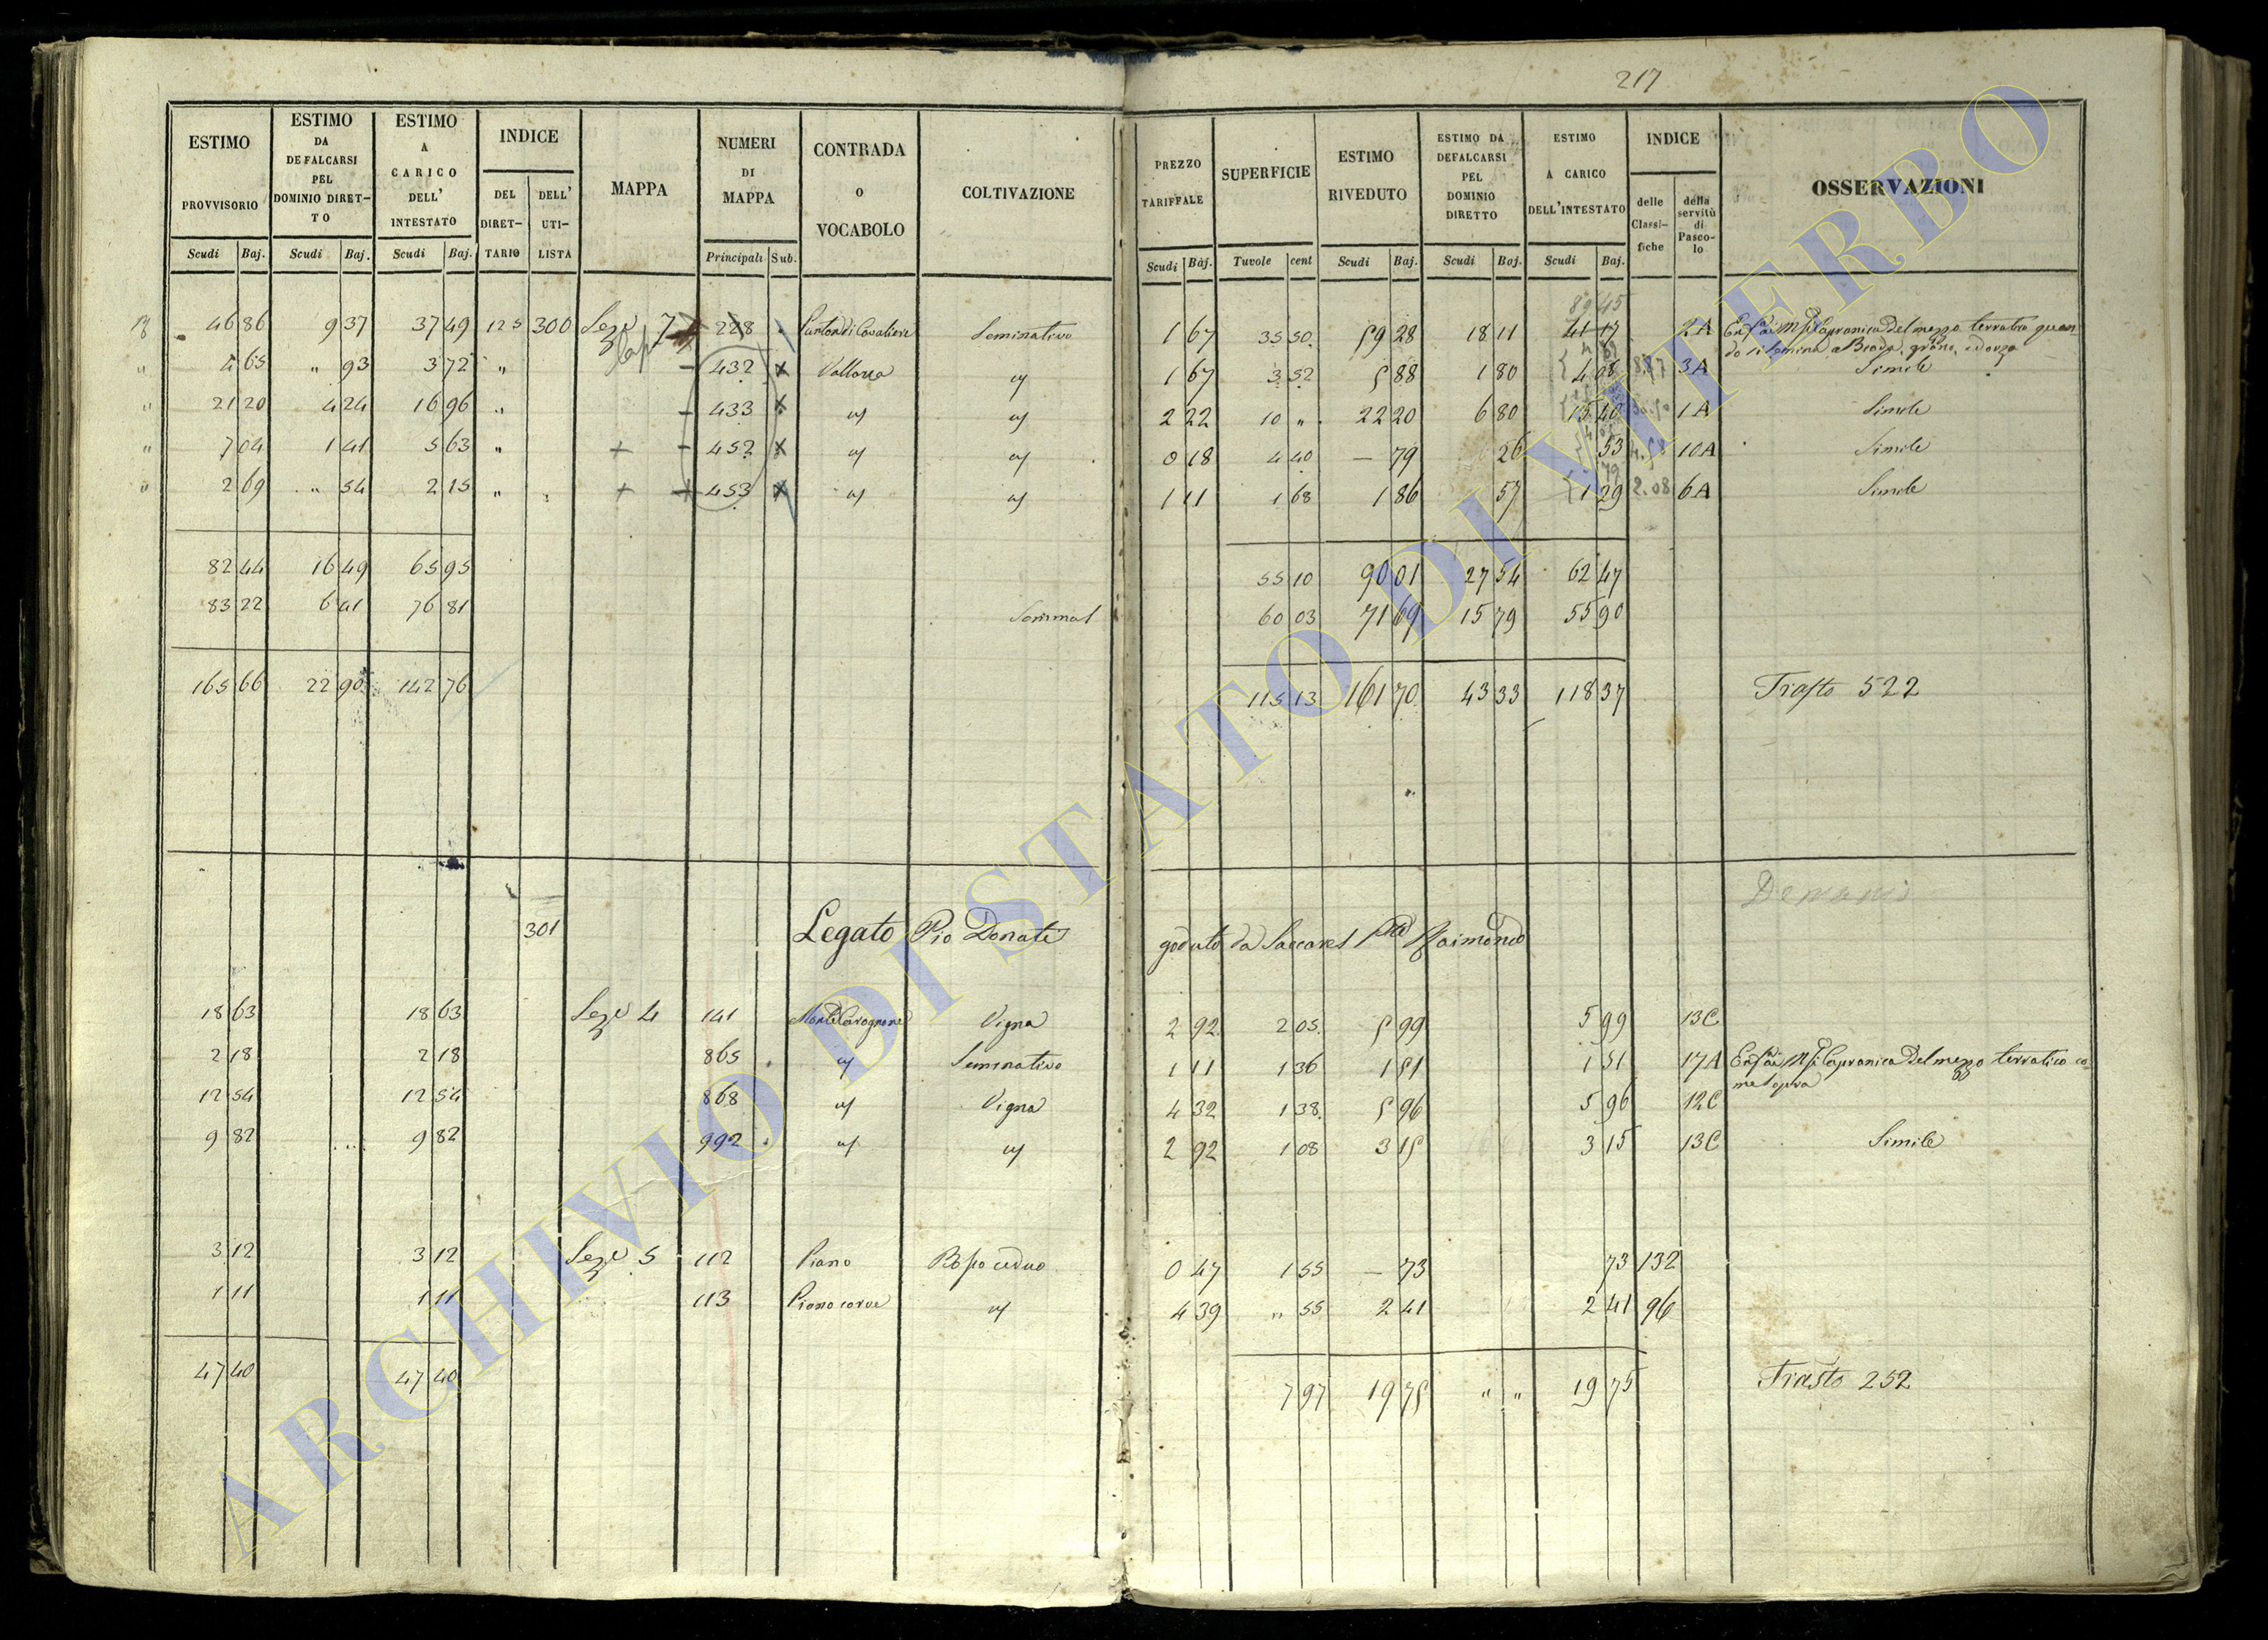 217
ESTIMO PROVVISORIO | ESTIMO DA DEFALCARSI PEL DOMINIO DIRETTO | ESTIMO A CARICO DELL' INTESTATO | INDICE DEL DIRETTARIO | DELL' UTILISTA | MAPPA | NUMERI DI MAPPA | CONTRADA O VOCABOLO | COLTIVAZIONE | PREZZO TARIFFALE | SUPERFICIE | ESTIMO RIVEDUTO | ESTIMO DA DEFALCARSI PEL DOMINIO DIRETTO | ESTIMO A CARICO DELL'INTESTATO | INDICE delle Classifiche | della servitù di Pascolo | OSSERVAZIONI
Scudi | Baj. | Scudi | Baj. | Scudi | Baj. | Principali | Sub. | Scudi | Baj. | Tavole | cent | Scudi | Baj. | Scudi | Baj. | Scudi | Baj.
89 45
46 86 | 9 37 | 37 49 | 125 | 300 | Seze 7 | 228 | Punton di Cavaliere | Seminativo | 1 67 | 35 50 | 59 28 | 18 11 | 41 17 | 2A | Capranica del mezzo terratico quando si semina a Biada, grano, ed orzo
4 65 | " 93 | 3 72 | " | 432 | X | Vallorea | 1 67 | 3 52 | 5 88 | 1 80 | 4 08 | 8.87 | 3A | Simile
21 20 | 4 24 | 16 96 | " | 433 | X | 2 22 | 10 " | 22 20 | 6 80 | 15 40 | 1A | Simile
7 04 | 1 41 | 5 63 | " | + | 452 | X | 0 18 | 4 40 | — 79 | 26 | 53 | 10A | Simile
2 69 | " 54 | 2 15 | " | + | 453 | X | 1 11 | 1 68 | 1 86 | 57 | 1 29 | 2.08 | 6A | Simile
82 44 | 16 49 | 65 95 | 55 10 | 90 01 | 27 54 | 62 47
83 22 | 6 41 | 76 81 | 60 03 | 71 69 | 15 79 | 55 90
165 66 | 22 90 | 142 76 | 115 13 | 161 70 | 43 33 | 118 37 | Trasto 522
301 | Legato Pio Donati goduto da Raimondo
18 63 | 18 63 | Seze 4 | 141 | Monte Cavognone | Vigna | 2 92 | 2 05 | 5 99 | 5 99 | 13C
2 18 | 2 18 | 865 | Seminativo | 1 11 | 1 36 | 1 51 | 1 51 | 17A | Capranica del mezzo terratico come sopra
12 54 | 12 54 | 868 | Vigna | 4 32 | 1 38 | 5 96 | 5 96 | 12C
9 82 | 9 82 | 992 | 2 92 | 1 08 | 3 15 | 3 15 | 13C | Simile
3 12 | 3 12 | Seze 5 | 112 | Piano | Bosco ceduo | 0 47 | 1 55 | — 73 | 73 | 132
1 11 | 1 11 | 113 | 4 39 | " 55 | 2 41 | 2 41 | 96
47 40 | 47 40 | 7 97 | 19 75 | " " | 19 75 | Trasto 252
ARCHIVIO DI STATO DI VITERBO